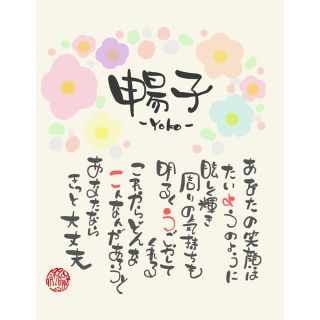 暢子
-Yoko-
あなたの笑顔は
たいようのように
眩しく輝き
周りの気持ちも
明るくうごかして
くれる
これからどんな
こんなんがあろうと
あなたなら
きっと大丈夫